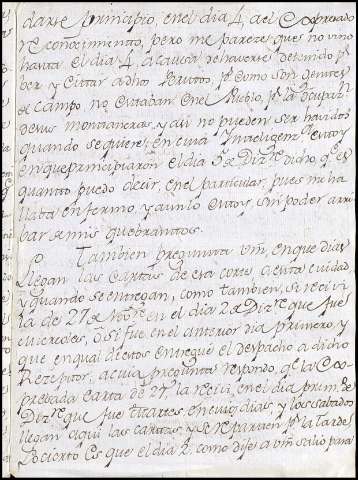 darse principio, en el dia 4, del Expresado
reconocimiento, pero me pareze que no vino
hasta el dia 4, a causa de haverse detenido pª
ber y Citar adhos Peritos, pr como son dentes
de Campo no estaban en el Pueblo, pr la ocupazn
de sus montaneras, y asi no pueden ser havidos
quando se quiere; en cuia Inteligenzª estoy
en que prinzipiaron el dia 5 de Dizre dicho, q.e es
quanto puedo decir, en el particular, pues me ha
llaba enfermo, y aun lo estoy, sin poder arri
bar de mis quebrantos.
Tambien pregunta Vm, en que dias
llegan las Cartas de esa Corte, a esta ciudad,
y quando se entregan, como tambien, si recivi
la de 27 de Novre en el dia 2 de Dizre que fue
miercoles, ò si fue en el anterior dia primero, y
que en qual de estos entregue el despacho a dicho
Rezeptor; a cuia pregunta respondo, qe la Ex
presada Carta de 27, la recivi, en el dia primo de
Dizre que fue Martes, en cuios dias, y los sabados
llegan aqui las cartas, y se reparten pr la tarde;
Lo cierto es que el dia 2, como dije a Vm salio para